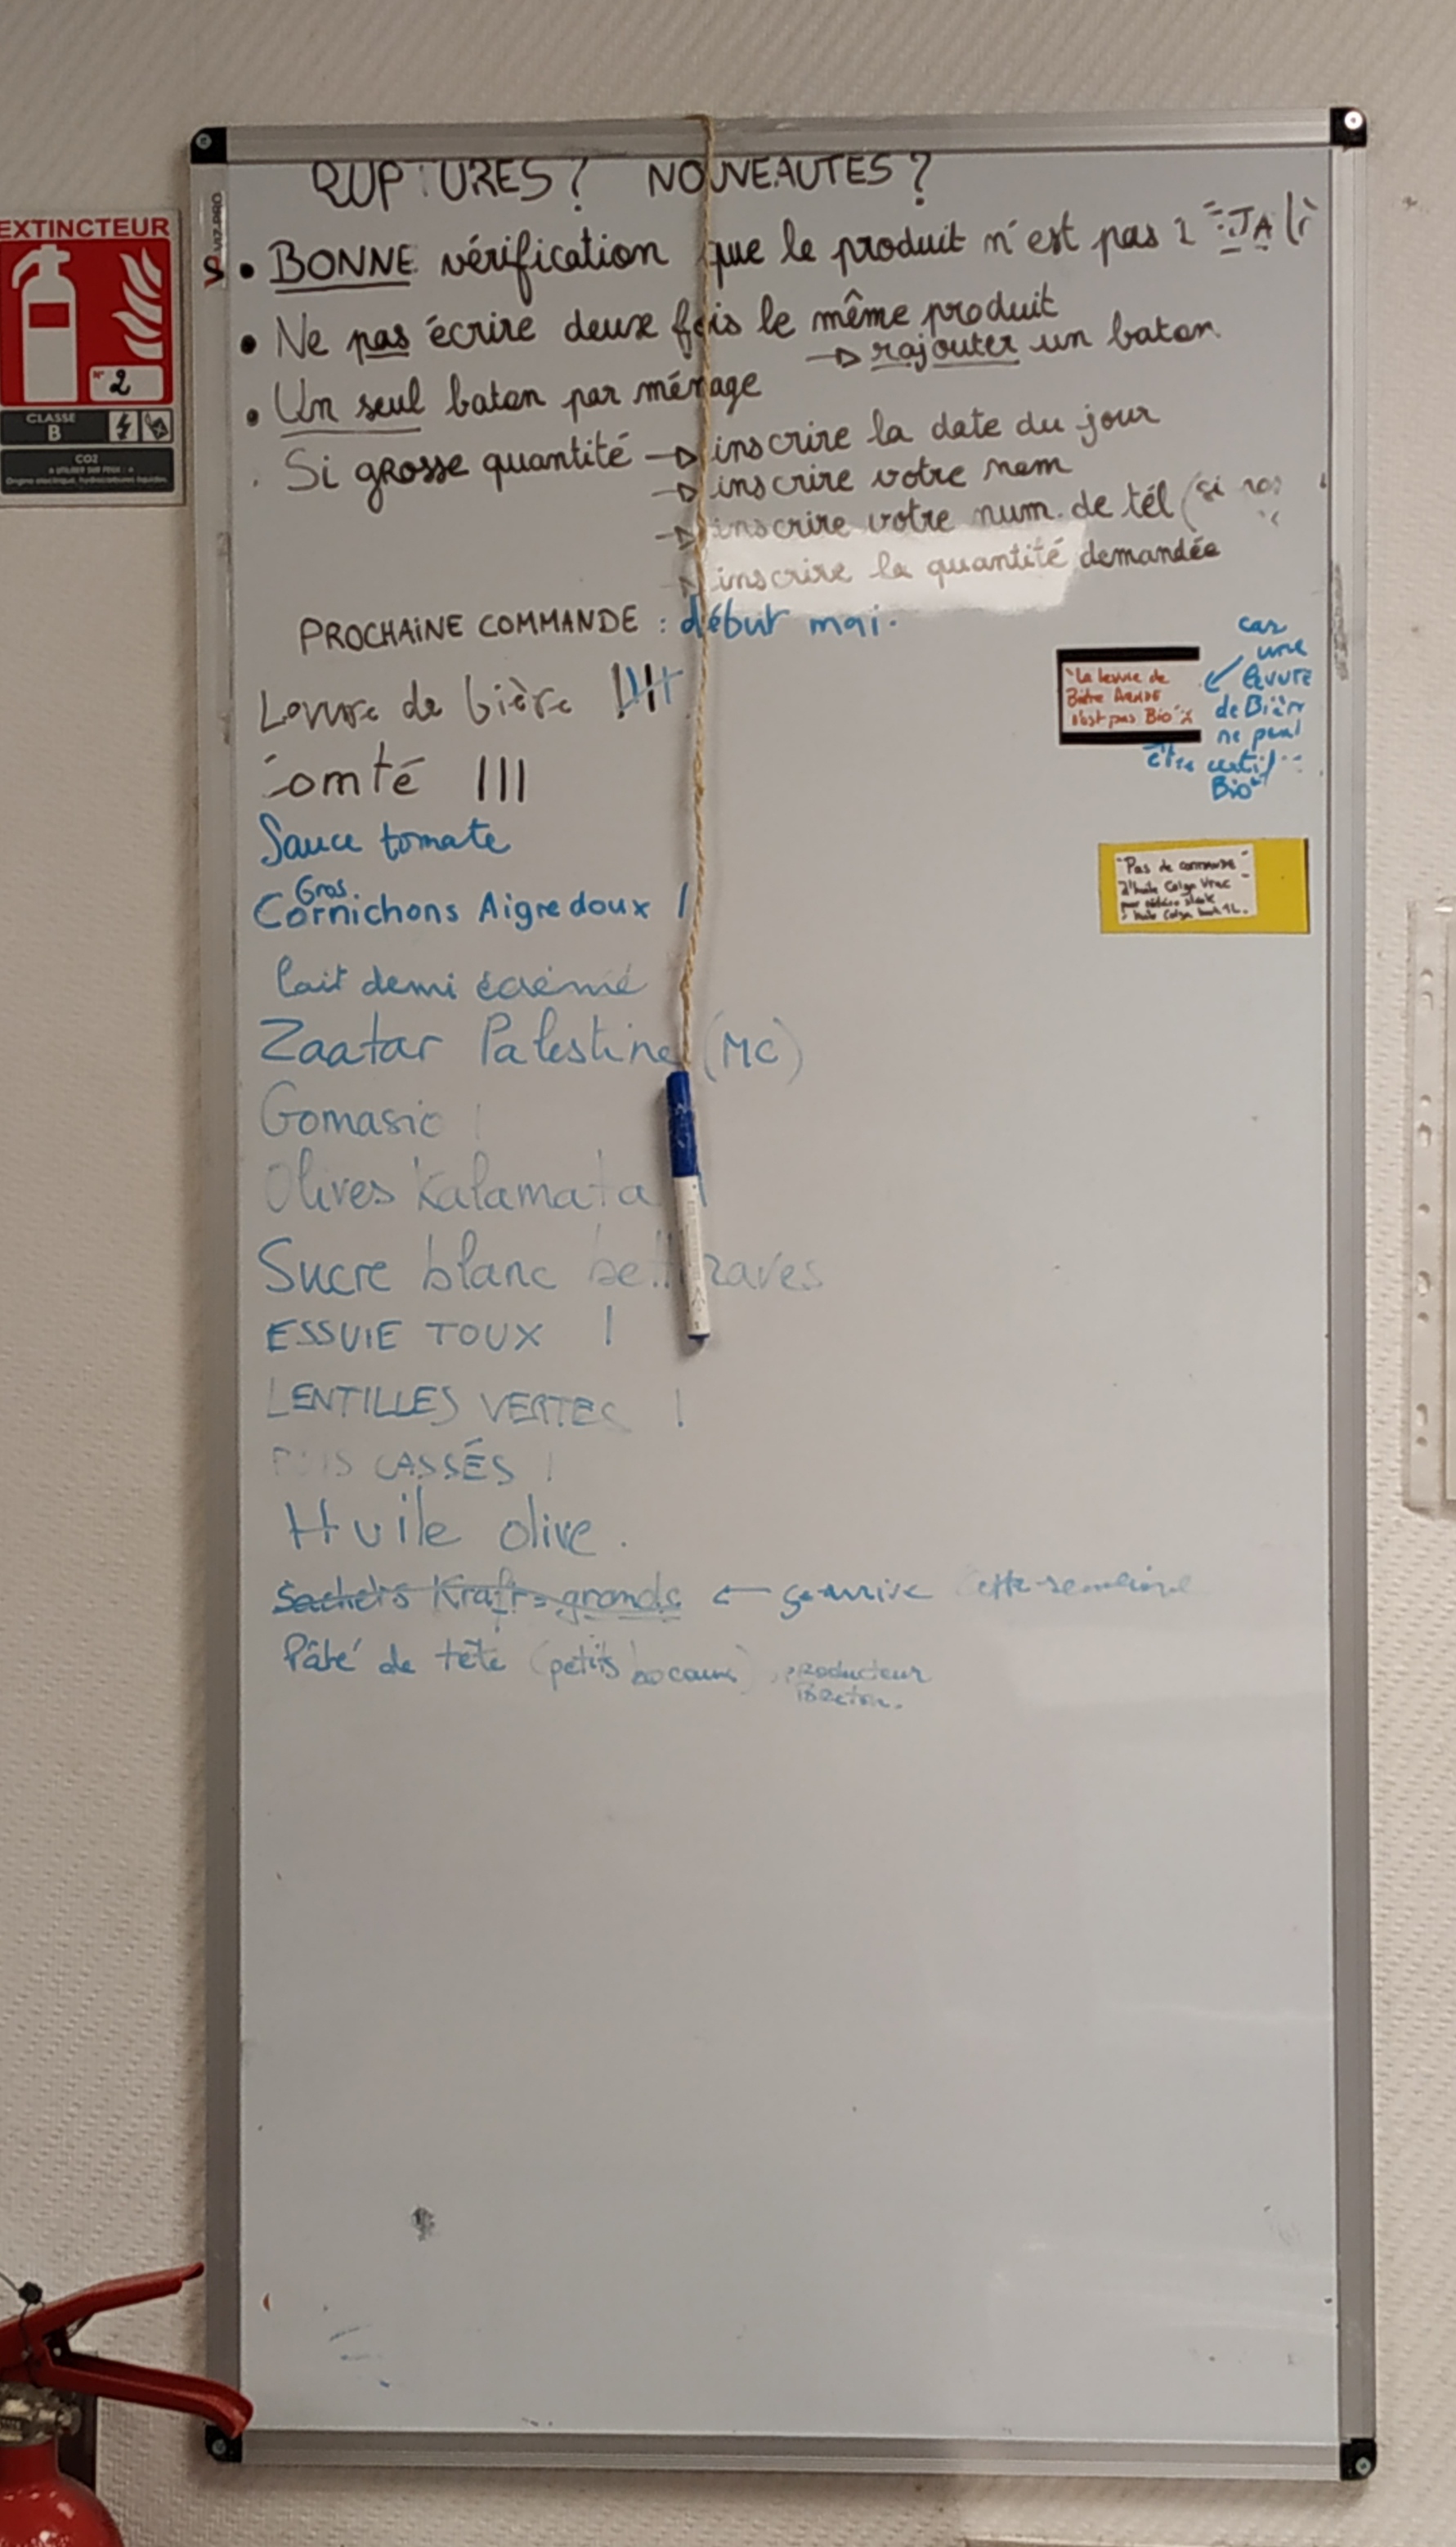 EXTINCTEUR
N° 2
CLASSE
B
CO2
RUPTURES ? NOUVEAUTES ?
• BONNE vérification que le produit n'est pas JA là
• Ne pas écrire deux fois le même produit
→ rajouter un baton
• Un seul baton par ménage
Si grosse quantité → inscrire la date du jour
→ inscrire votre nom
→ inscrire votre num. de tél (si
→ inscrire la quantité demandée
PROCHAINE COMMANDE : début mai.
Levure de bière
Comté III
Sauce tomate
Gros
Cornichons Aigre doux I
lait demi écrémé
Zaatar Palestine (MC)
Gomasio I
Olives Kalamata I
Sucre blanc betteraves
ESSUIE TOUX I
LENTILLES VERTES I
POIS CASSÉS I
Huile olive.
Sachets Kraft grands ← ça arrive cette semaine
Pâté de tête (petits bocaux) producteur
Breton.
"La levure de
Bière
n'est pas Bio"
car
une
levure
de Bière
ne peut
être certif
Bio
"Pas de commande"
d'huile Colza Vrac
pour
huile Colza 1L.